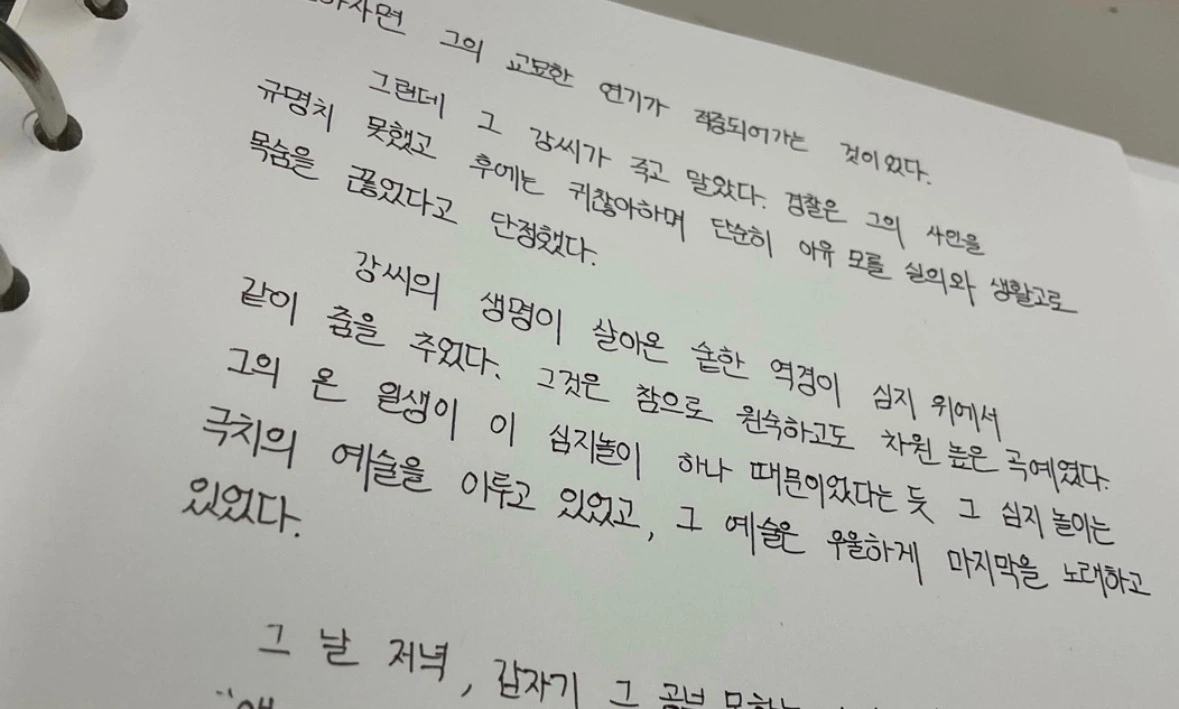 그의 교묘한 연기가 적중되어가는 것이었다.
그런데 그 강씨가 죽고 말았다. 경찰은 그의 사인을
규명치 못했고 후에는 귀찮아하며 단순히 아유 모를 실의와 생활고로
목숨을 끊었다고 단정했다.
강씨의 생명이 살아온 숱한 역경이 심지 위에서
같이 춤을 추었다. 그것은 참으로 원숙하고도 차원 높은 곡예였다.
그의 온 일생이 이 심지놀이 하나 때문이었다는 듯 그 심지 놀이는
극치의 예술을 이루고 있었고, 그 예술은 우울하게 마지막을 노래하고
있었다.
그 날 저녁, 갑자기 그